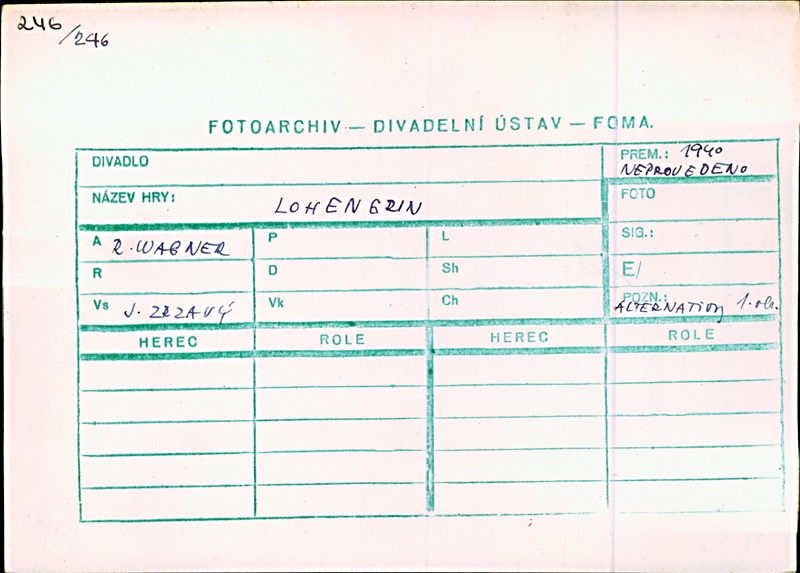 246
/246
FOTOARCHIV — DIVADELNÍ ÚSTAV — FOMA.
DIVADLO
PREM.: 1940
NEPROVEDENO
NÁZEV HRY: LOHENGRIN
FOTO
A R. WAGNER P L SIG.:
R D Sh E/
Vs J. ZRZAVÝ Vk Ch POZN.:
ALTERNATIVY 1. obr.
HEREC ROLE HEREC ROLE